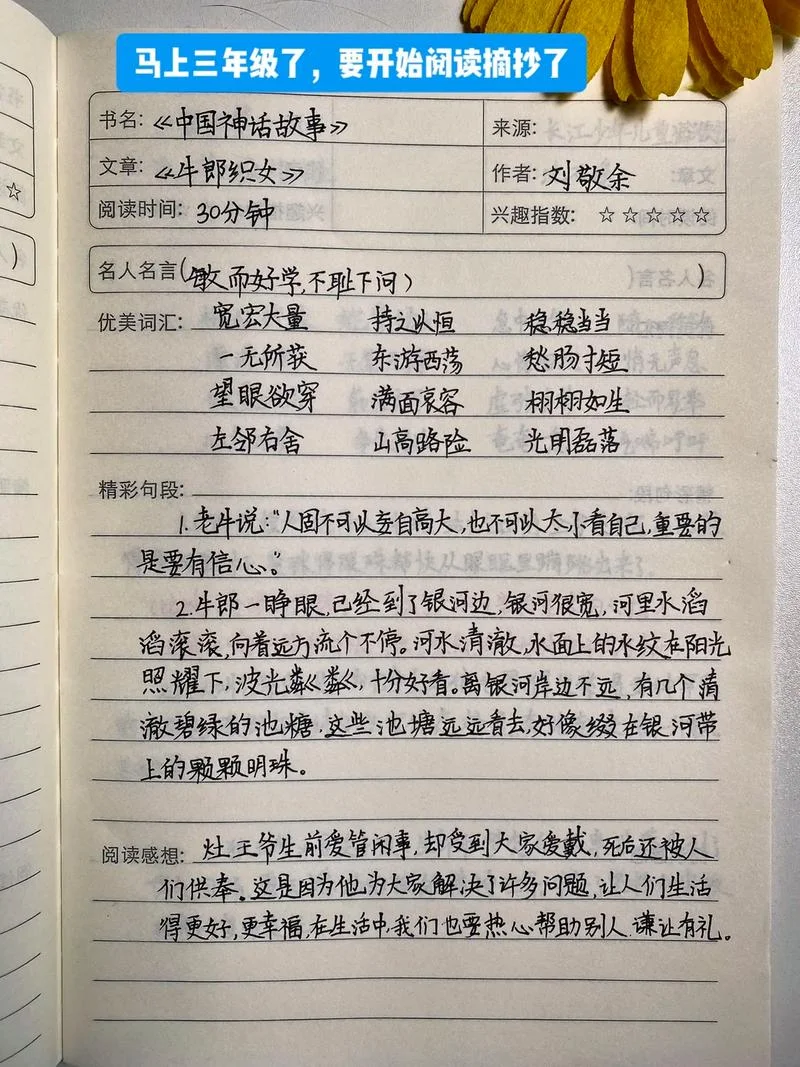 马上三年级了，要开始阅读摘抄了
书名：《中国神话故事》 来源：
文章：《牛郎织女》 作者：刘敬余
阅读时间：30分钟 兴趣指数：☆☆☆☆☆
名人名言(敏而好学,不耻下问) )
优美词汇：宽宏大量 持之以恒 稳稳当当
一无所获 东游西荡 愁肠寸短
望眼欲穿 满面哀容 栩栩如生
左邻右舍 山高路险 光明磊落
精彩句段：
1.老牛说:“人固不可以妄自高大,也不可以太小看自己,重要的
是要有信心。”
2.牛郎一睁眼,已经到了银河边,银河很宽,河里水滔
滔滚滚,向着远方流个不停。河水清澈,水面上的水纹在阳光
照耀下,波光粼粼,十分好看。离银河岸边不远,有几个清
澈碧绿的池糖.这些池塘远远看去,好像缀在银河带
上的颗颗明珠。
阅读感想：灶王爷生前爱管闲事,却受到大家爱戴,死后还被人
们供奉。这是因为他为大家解决了许多问题,让人们生活
得更好,更幸福,在生活中,我们也要热心帮助别人.谦让有礼。